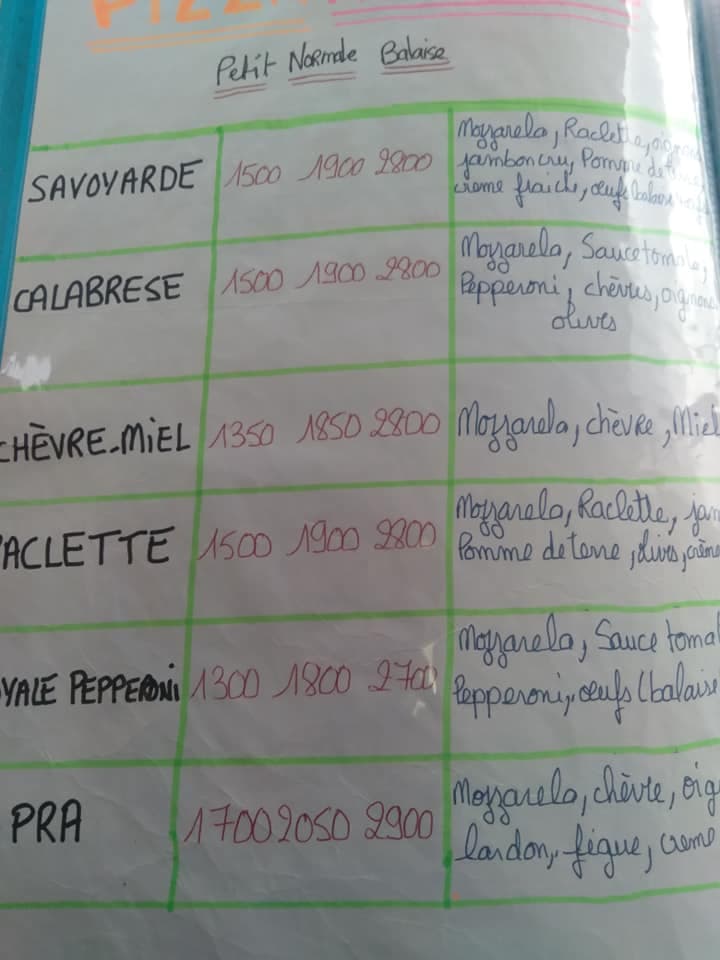 PIZZ
Petit Normale Balaise
SAVOYARDE 1500 1900 2800 Mozzarela, Raclette, oignon
jambon cru, Pomme de terre
creme fraîche, oeufs (balaise
CALABRESE 1500 1900 2800 Mozzarela, Sauce tomate,
Pepperoni, chèvres, oignons
olives
CHÈVRE-MiEL 1350 1850 2800 Mozzarela, chèvre, Miel
ACLETTE 1500 1900 2800 Mozzarela, Raclette, jam
Pomme de terre, olives, crème
YALE PEPPERONi 1300 1800 2700 Mozzarela, Sauce tomat
Pepperoni, oeufs (balaise
PRA 1700 2050 2900 Mozzarela, chèvre, oig
lardon, figue, creme